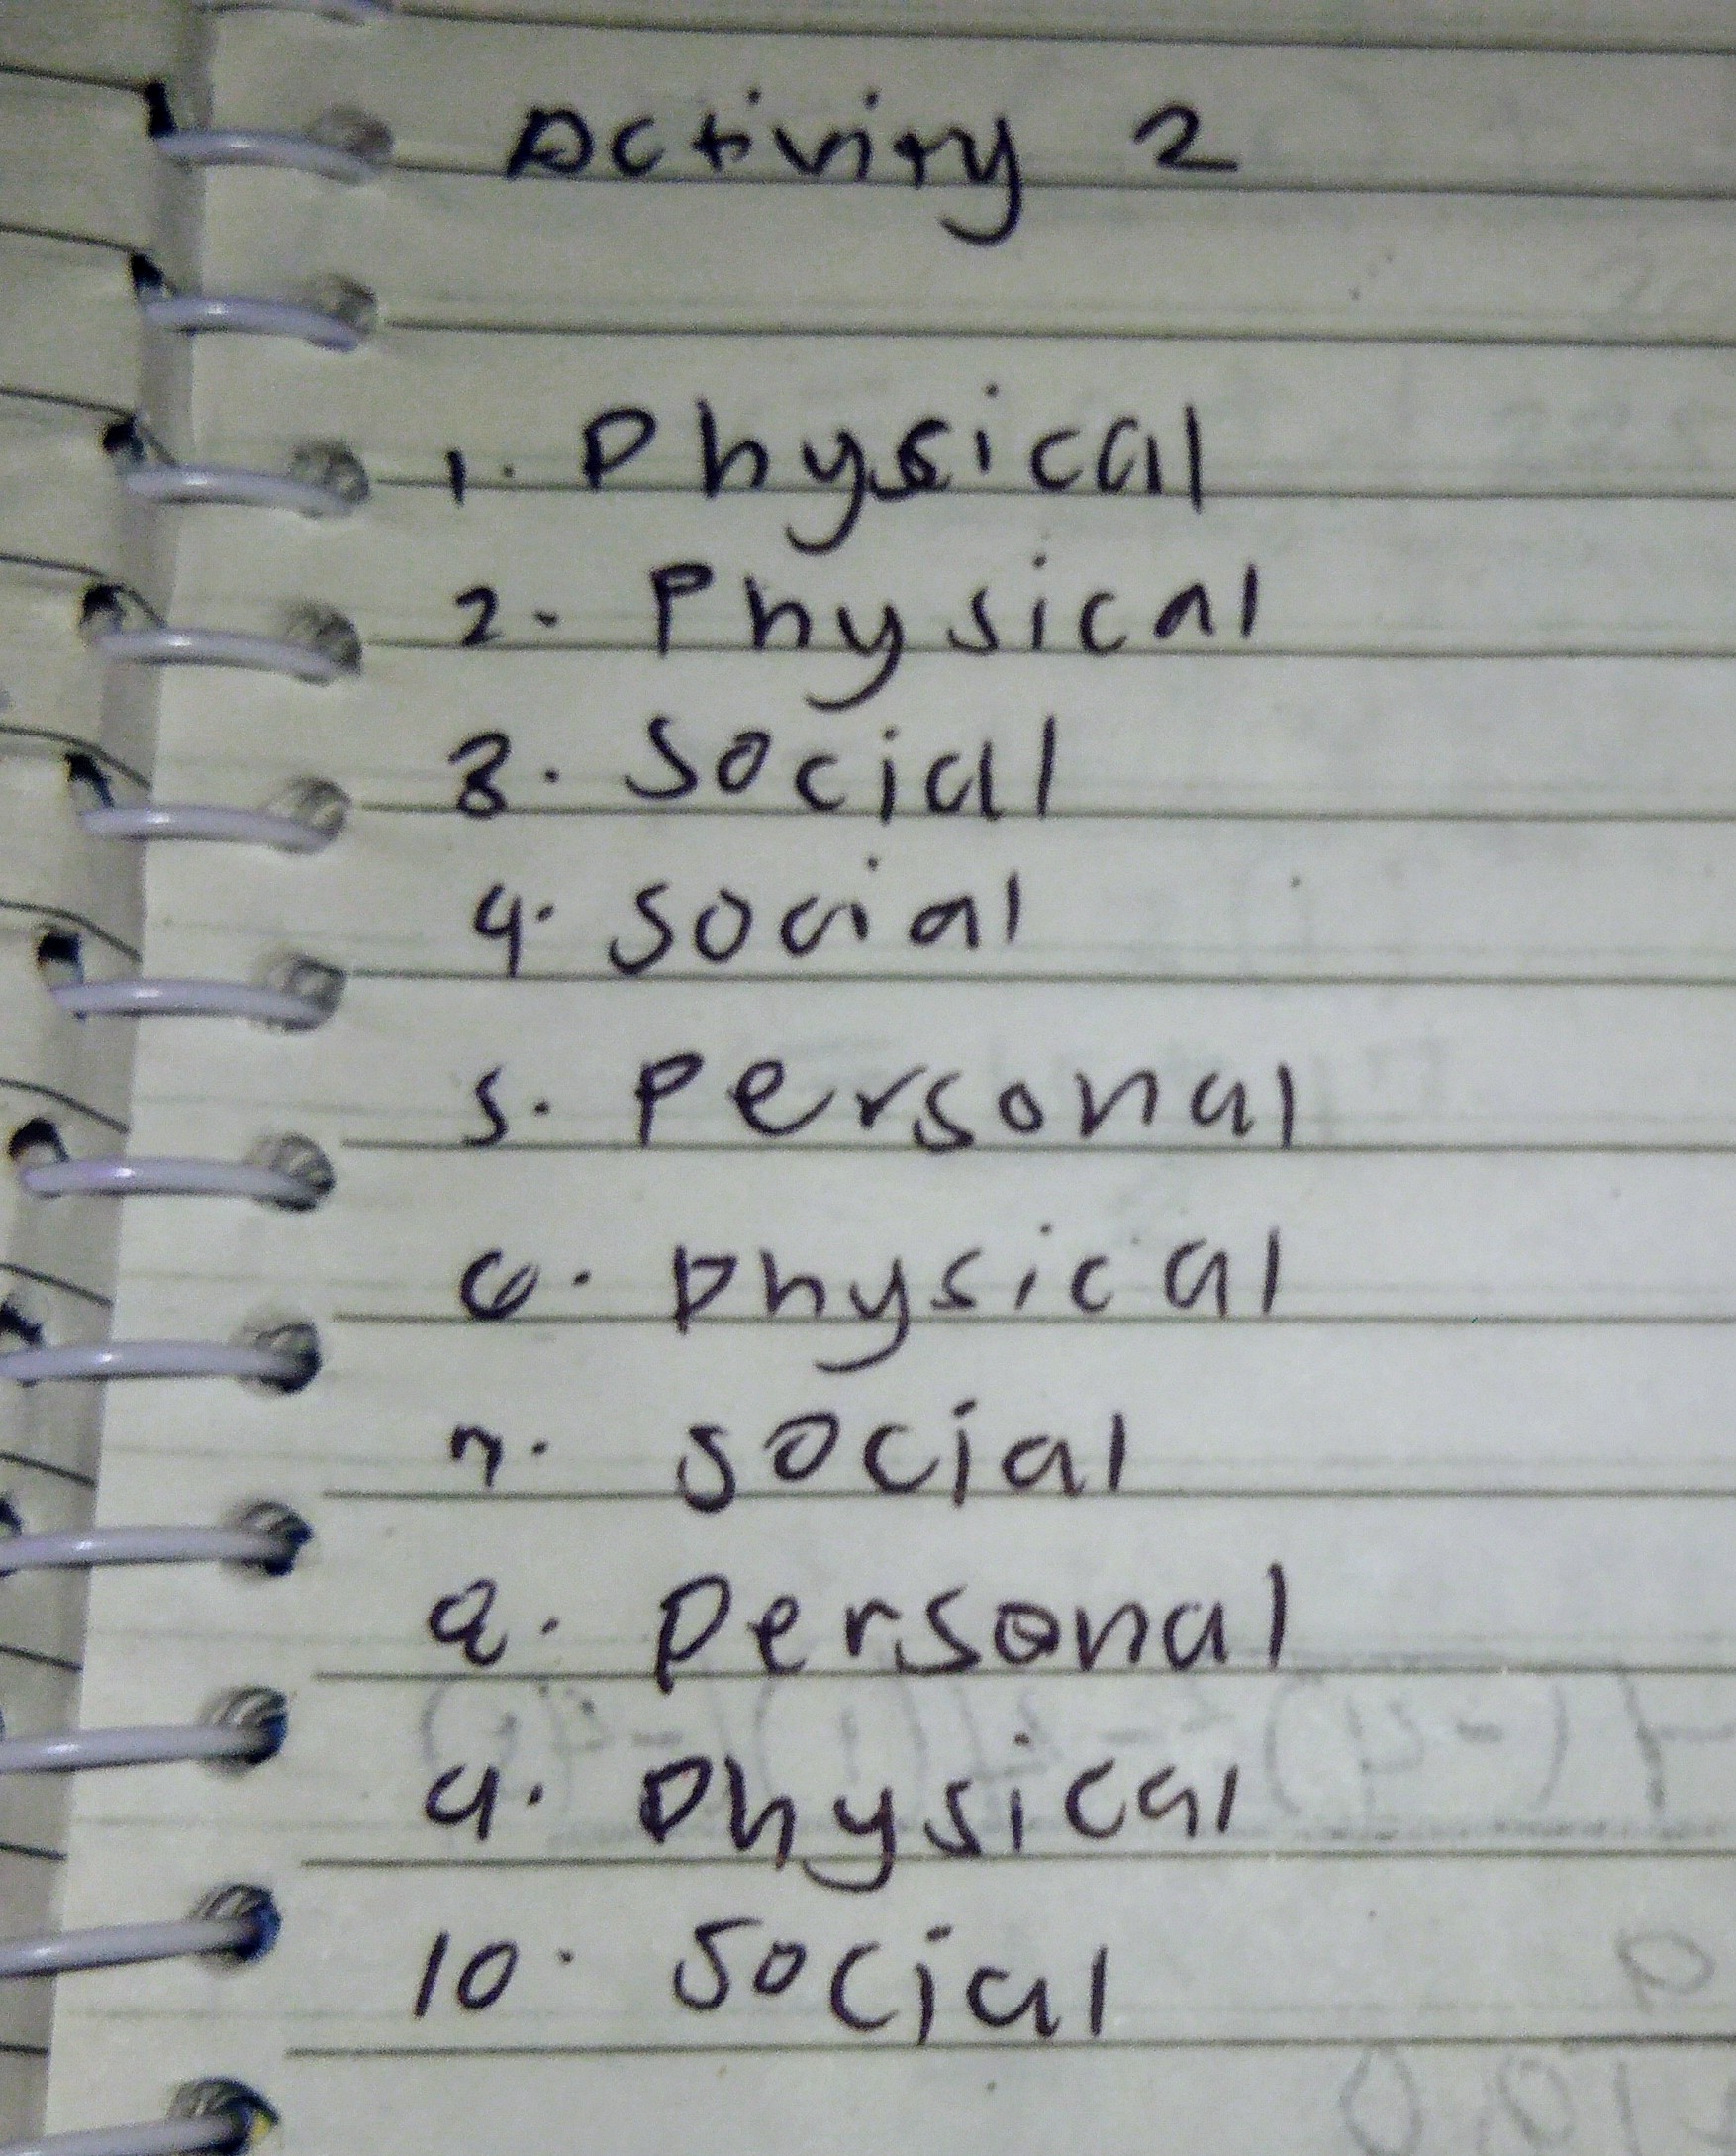 Activity 2
1. Physical
2. Physical
3. Social
4. Social
5. Personal
6. physical
7. social
8. personal
9. physical
10. Social